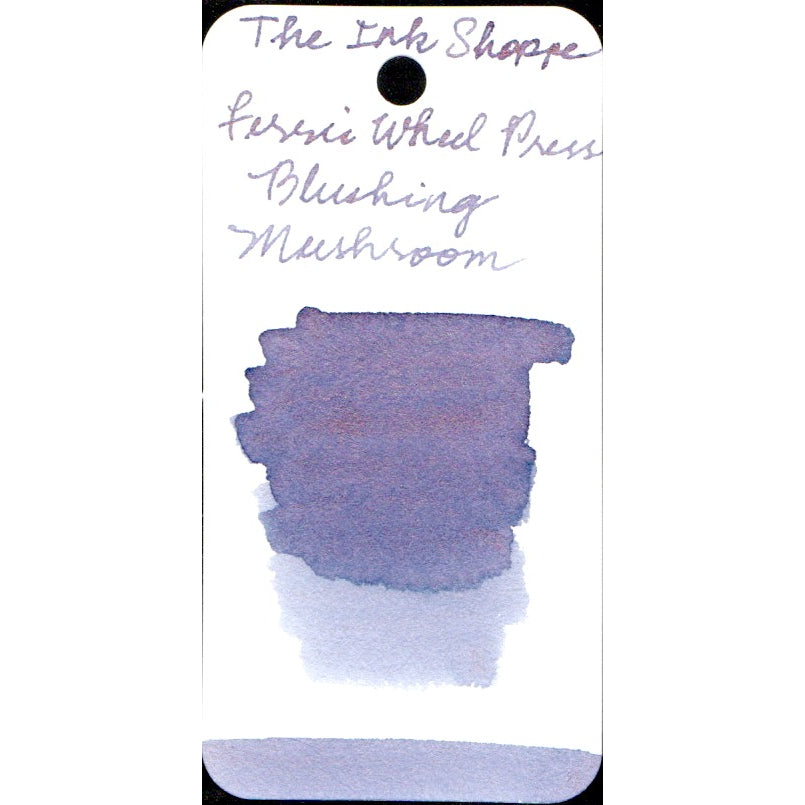 The Ink Shoppe
Ferris Wheel Press
Blushing
Mushroom